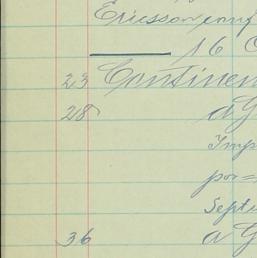 Ericsson
16 C
23 Continen
28 a G
Imp
por=
Septi
36 a G